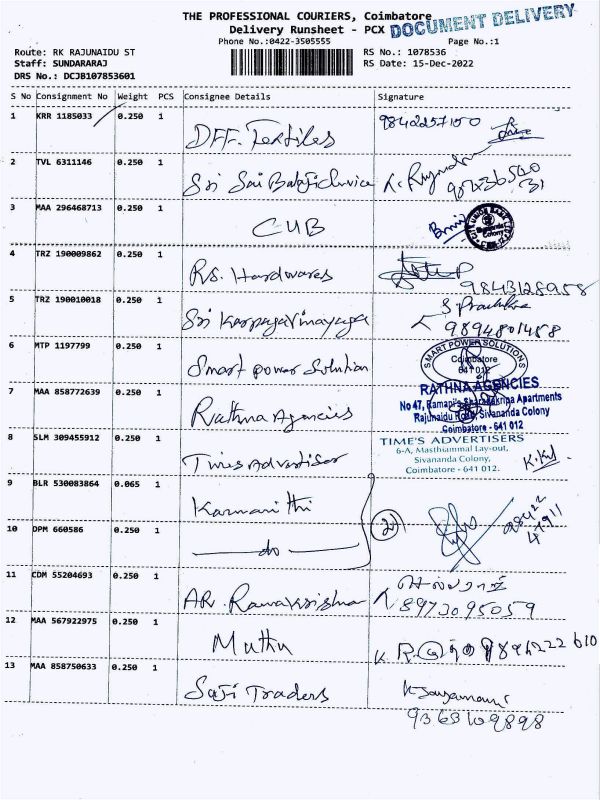 THE PROFESSIONAL COURIERS, Coimbatore
DOCUMENT DELIVERY
Delivery Runsheet - PCX
Phone No.:0422-3505555 Page No.:1
Route: RK RAJUNAIDU ST RS No.: 1078536
Staff: SUNDARARAJ RS Date: 15-Dec-2022
DRS No.: DCJB107853601
S No Consignment No Weight PCS Consignee Details Signature
1 KRR 1185033 0.250 1 DFF. Textiles 9842257150
2 TVL 6311146 0.250 1 Sri Sai Balaji
3 MAA 296468713 0.250 1 CUB
CITY UNION BANK Sivananda Colony
4 TRZ 190009862 0.250 1 Rs. Hardwares 9843128958
5 TRZ 190010018 0.250 1 Sri Karpagavinayaga 9894801458
6 MTP 1197799 0.250 1 Smart power Solution
SMART POWER SOLUTIONS
Coimbatore
641 012
7 MAA 858772639 0.250 1 Rathna Agencies
RATHNA AGENCIES
No 47, Ramani's Apartments
Rajunaidu Road, Sivananda Colony
Coimbatore - 641 012
8 SLM 309455912 0.250 1 Times Advertiser
TIME'S ADVERTISERS
6-A, Masthiammal Lay-out,
Sivananda Colony,
Coimbatore - 641 012.
9 BLR 530083864 0.065 1 Karmanithi
2
10 DPM 660586 0.250 1 do
11 CDM 55204693 0.250 1 AR. Ramakrishna 8973095059
12 MAA 567922975 0.250 1 Muthu
13 MAA 858750633 0.250 1 Saji Traders
9363109898